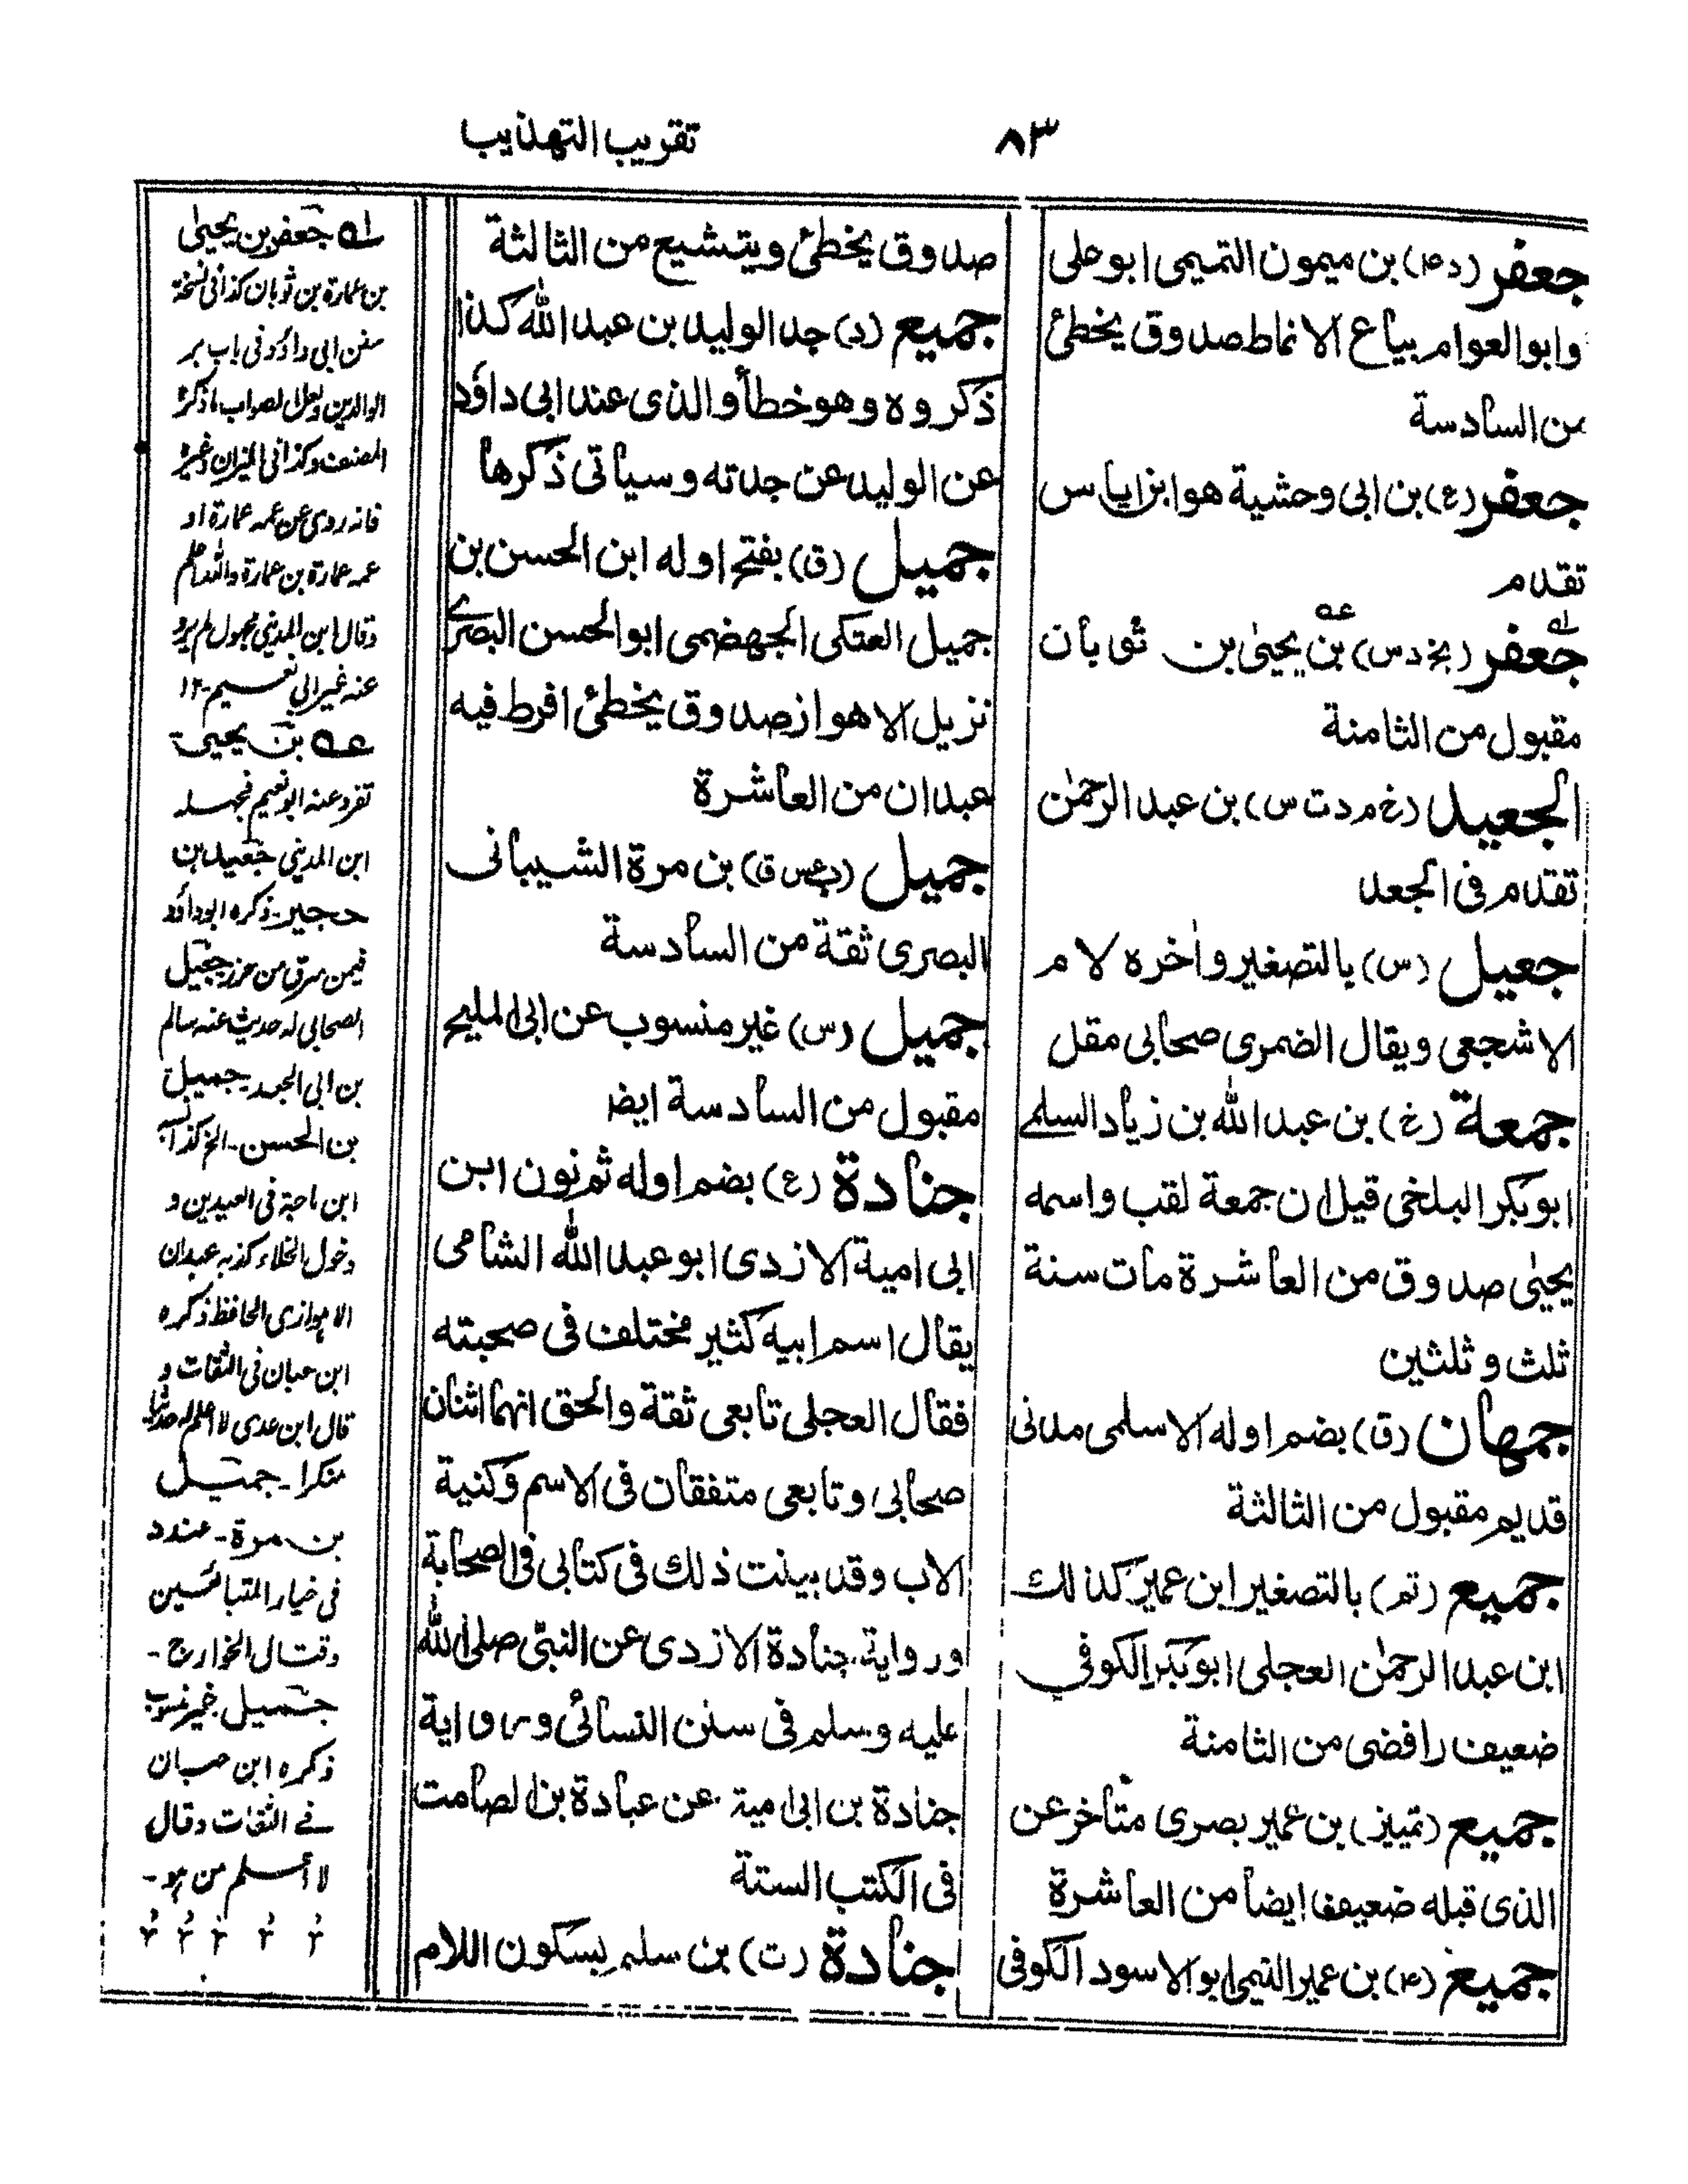 ٨٣
تقريب التهذيب
جعفر (د۴) بن ميمون التميمى ابو على
وابو العوام بياع الانماط صدوق يخطئ
من السادسة
جعفر (ع) بن ابى وحشية هو ابن اياس
تقدم
جعفر (بخ د س) بن يحيىٰ بن ثوبان
مقبول من الثامنة
الجعيد (خ م د ت س) بن عبد الرحمٰن
تقدم فى الجعد
جعيل (س) بالتصغير واٰخره لام
الاشجعى ويقال الضمرى صحابى مقل
جمعة (خ) بن عبد الله بن زياد السلمے
ابو بكر البلخى قيل ان جمعة لقب واسمه
يحيىٰ صدوق من العاشرة مات سنة
ثلث وثلثين
جمهان (ق) بضم اوله الاسلمى مدنى
قديم مقبول من الثالثة
جميع (تم) بالتصغير ابن عمير كذلك
ابن عبد الرحمٰن العجلى ابو بكر الكوفي
ضعيف رافضى من الثامنة
جميع (تمييز) بن عمير بصرى متأخر عن
الذى قبله ضعيف ايضا من العاشرة
جميع (۴) بن عمير التيمى ابو الاسود الكوفى
صدوق يخطئ ويتشيع من الثالثة
جميع (د) جد الوليد بن عبد الله كذا
ذكروه وهو خطأ والذى عند ابى داؤد
عن الوليد عن جدته وسياتى ذكرها
جميل (ق) بفتح اوله ابن الحسن بن
جميل العتكى الجهضمى ابو الحسن البصرے
نزيل الاهواز صدوق يخطئ افرط فيه
عبدان من العاشرة
جميل (ق) بن مرة الشيبانى
البصرى ثقة من السادسة
جميل (س) غير منسوب عن ابى المليح
مقبول من السادسة ايضا
جنادة (ع) بضم اوله ثم نون ابن
ابى امية الازدى ابو عبد الله الشامى
يقال اسم ابيه كثير مختلف فى صحبته
فقال العجلى تابعى ثقة والحق انهما اثنان
صحابى وتابعى متفقان فى الاسم وكنية
الاب وقد بينت ذلك فى كتابى فى الصحابة
ورواية جنادة الازدى عن النبىّ صلى الله
عليه وسلم فى سنن النسائى ورواية
جنادة بن ابى امية عن عبادة بن الصامت
فى الكتب الستة
جنادة (ت) بن سلم بسكون اللام
لـه جعفر بن يحيىٰ
بن عمارة بن ثوبان كذا فى نسخة
سنن ابى داؤد فى باب بر
الوالدين ولعل الصواب ما ذكره
المصنف وكذا فى الميزان وغيره
فانه روى عن عمه عمارة او
عمه عمارة بن عمارة والله اعلم
وقال ابن المدينى مجهول لم يرو
عنه غير ابى نعيم - ١٢
عـه بن يحيى
تفرد عنه ابو نعيم فجهله
ابن المدينى جعيد بن
حجير - ذكره ابو داؤد
فيمن سرق من حرز جعيل
الصحابى له حديث عنه سالم
بن ابى الجعد - جميل
بن الحسن - الخ كذا
ابن ماجة فى العيدين و
دخول الخلاء كذبه عبدان
الاهوازى الحافظ ذكره
ابن حبان فى الثقات و
قال ابن عدى لا اعلم له حديثا
منكرا - جميل
بن مرة - عند د
فى خيار المتبائعين
وقتال الخوارج -
جميل غير منسوب
ذكره ابن حبان
فے الثقات وقال
لا اعلم من هو -